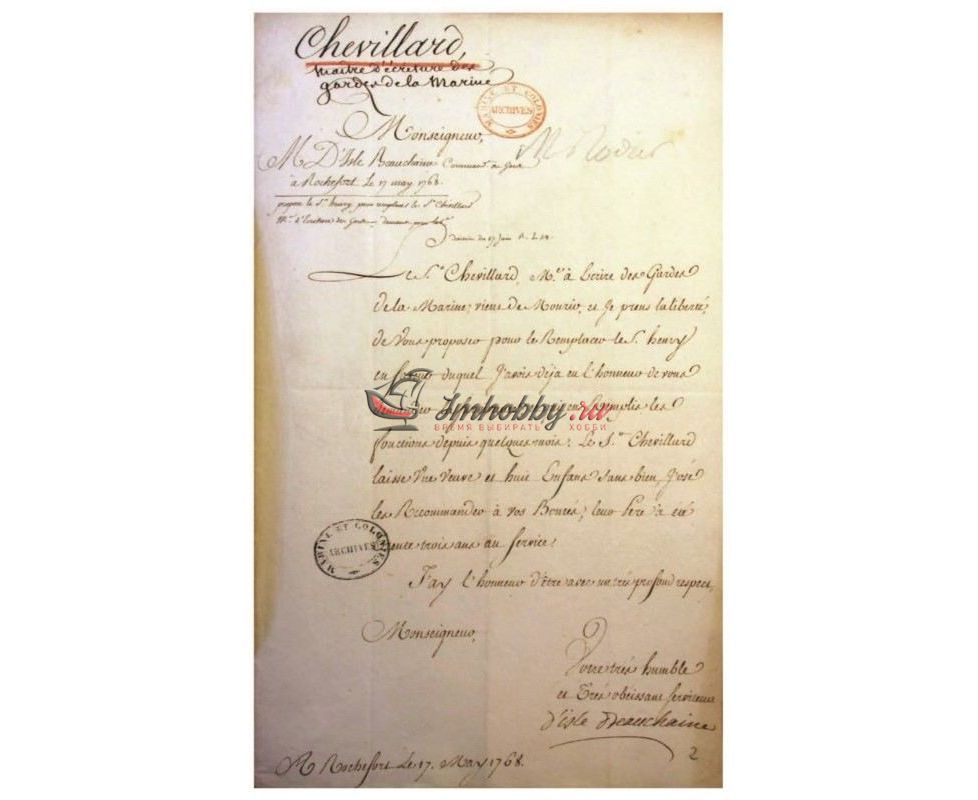 Chevillard,
Maitre d'écriture des
gardes de la Marine
MARINE ET COLONIES
ARCHIVES
Monseigneur,
M. D'Isle Beauchaine Command. de
à Rochefort Le 17 may 1768.
propose le Sr. henry pour remplacer le Sr. Chevillard
Le Sr. Chevillard, Me. à Ecrire des Gardes
de la Marine, vient de Mourir, et Je prens la liberté,
de Vous proposer pour le Remplacer le Sr. henry
en faveur duquel J'avois déja eu l'honneur de vous
Imhobby.ru
ВРЕМЯ ВЫБИРАТЬ ХОББИ
les
fonctions depuis quelques mois; Le Sr. Chevillard
laisse Une Veuve et huit Enfans sans bien, J'ose
les Recommander à vos Bontés; leur Pere à été
trente trois ans au service;
MARINE ET COLONIES
ARCHIVES
J'ay l'honneur d'être avec un très profond respect,
Monseigneur,
Votre trés humble
et Trés obéissant serviteur
d'isle Beauchaine
2
A Rochefort Le 17. May 1768.